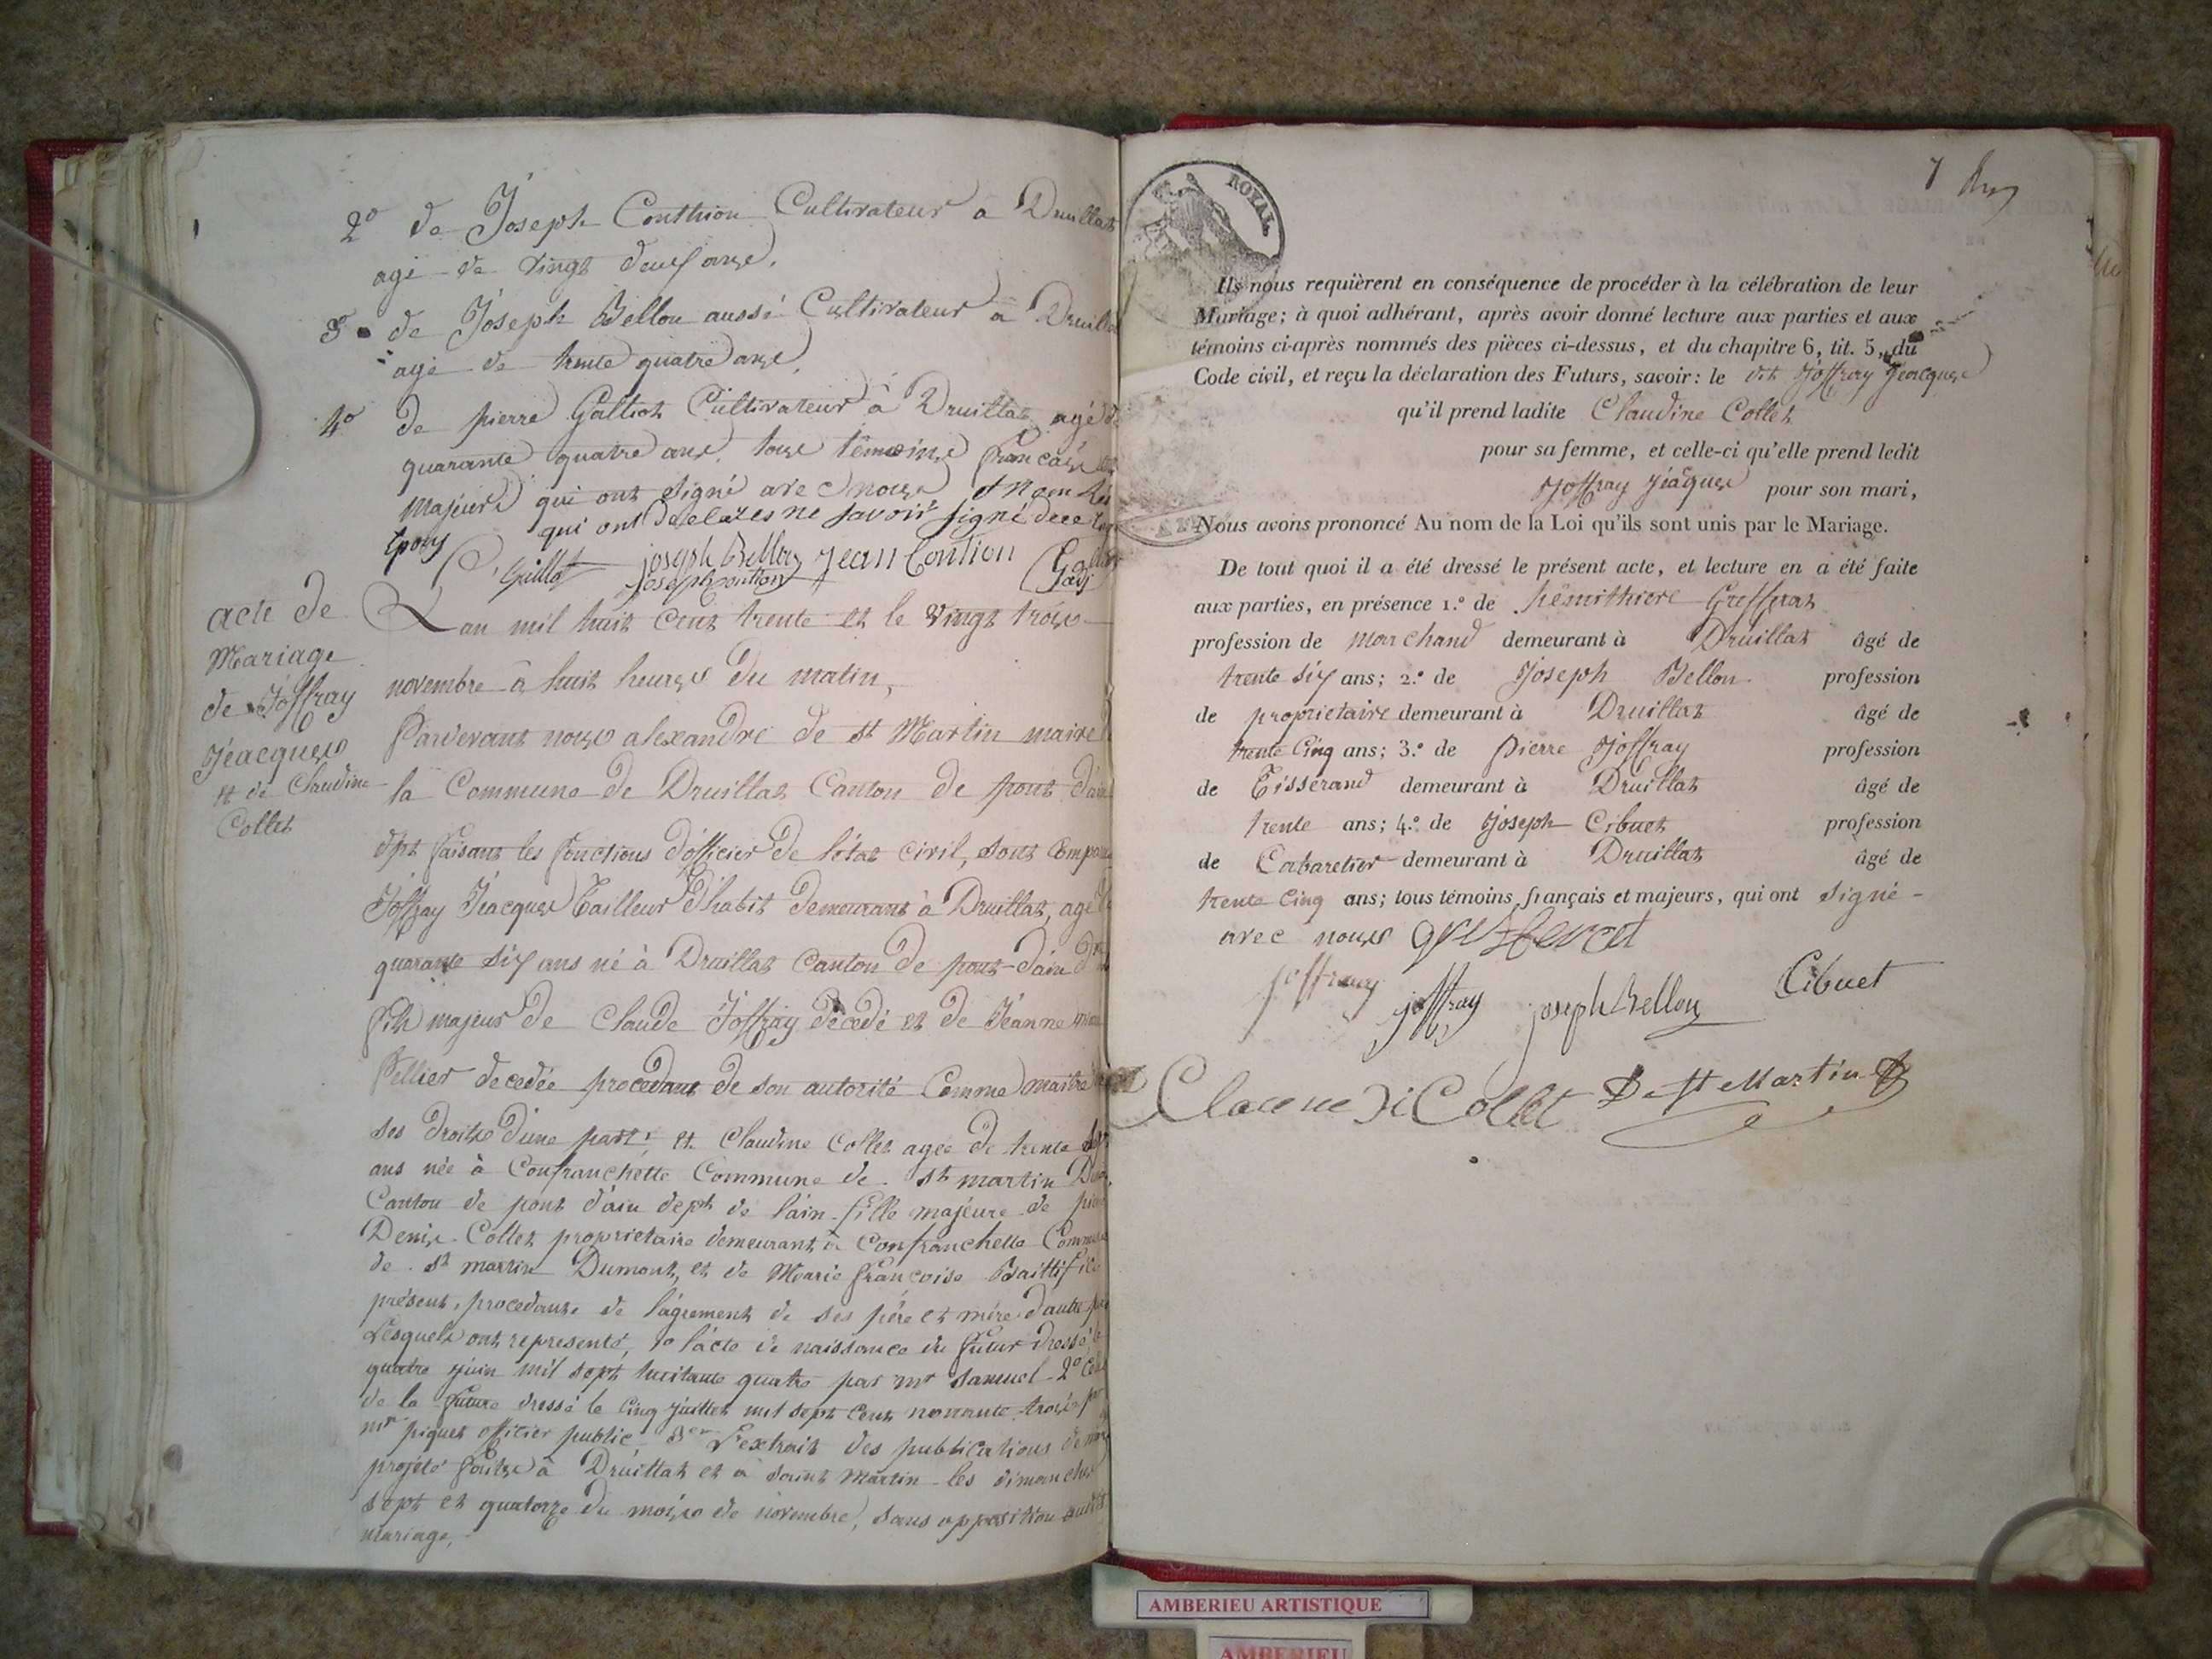 2o de Joseph Conthion Cultivateur a Druillat
agé de vingt deux ans.
3o de Joseph Bellou aussi Cultivateur a Druillat
agé de trente quatre ans.
4o de pierre Galliot Cultivateur a Druillat agé de
quarante quatre ans. tous témoins francais et
majeurs qui ont signé avec nous
qui ont declarés ne savoir signé de ce
époux
joseph Bellou jean Contion
joseph contion
acte de
Mariage
de Joffray
Jeacques
et de Claudine
Collet
L'an mil huit Cent trente et le vingt trois
novembre à huit heures du matin,
Pardevant nous alexandre de st Martin maire
la Commune de Druillat Canton de pont d'ain
dpt faisant les fonctions d'officier de l'état civil, sont Comparus
Joffray Jeacques Tailleur d'habit demeurant à Druillat, agé de
quarante six ans né à Druillat Canton de pont-d'ain
fils majeur de Claude Joffray décedé et de Jeanne
Pellier decedée procedant de son autorité Comme maitre
ses droits d'une part; et Claudine Collet agée de trente sept
ans née à Confranchette Commune de st martin Du
Canton de pont d'ain dept de l'ain fille majeure de
Denis Collet proprietaire demeurant à Confranchette Commune
de st martin Dumont, et de Marie françoise Baillif
présent, procedants de l'agrement de ses père et mère d'autre part
Lesquels ont representé, 1o l'acte de naissance du futur dressé le
quatre juin mil sept huitante quatre par mr samuel 2o Celui
de la future dressé le Cinq Juillet mil sept Cent nonante trois par
mr piquet officier public, 3o L'extrait des publications de
projeté faites à Druillat et à saint Martin les dimanches
sept et quatorze du mois de novembre, sans opposition audit
mariage,
7
ROYAL
Ils nous requièrent en conséquence de procéder à la célébration de leur
Mariage; à quoi adhérant, après avoir donné lecture aux parties et aux
témoins ci-après nommés des pièces ci-dessus, et du chapitre 6, tit. 5, du
Code civil, et reçu la déclaration des Futurs, savoir: le dit Joffray Jeacques
qu'il prend ladite Claudine Collet
pour sa femme, et celle-ci qu'elle prend ledit
Joffray Jeacques pour son mari,
Nous avons prononcé Au nom de la Loi qu'ils sont unis par le Mariage.
De tout quoi il a été dressé le présent acte, et lecture en a été faite
aux parties, en présence 1.o de
profession de marchand demeurant à Druillat âgé de
trente six ans; 2.o de Joseph Bellou profession
de proprietaire demeurant à Druillat âgé de
trente Cinq ans; 3.o de pierre Joffray profession
de Tisserand demeurant à Druillat âgé de
trente ans; 4.o de Joseph Cibuet profession
de Cabaretier demeurant à Druillat âgé de
trente Cinq ans; tous témoins français et majeurs, qui ont signé
avec nous
joffray joffray joseph Bellou Cibuet
Collet De st Martin
AMBERIEU ARTISTIQUE
AMBERIEU